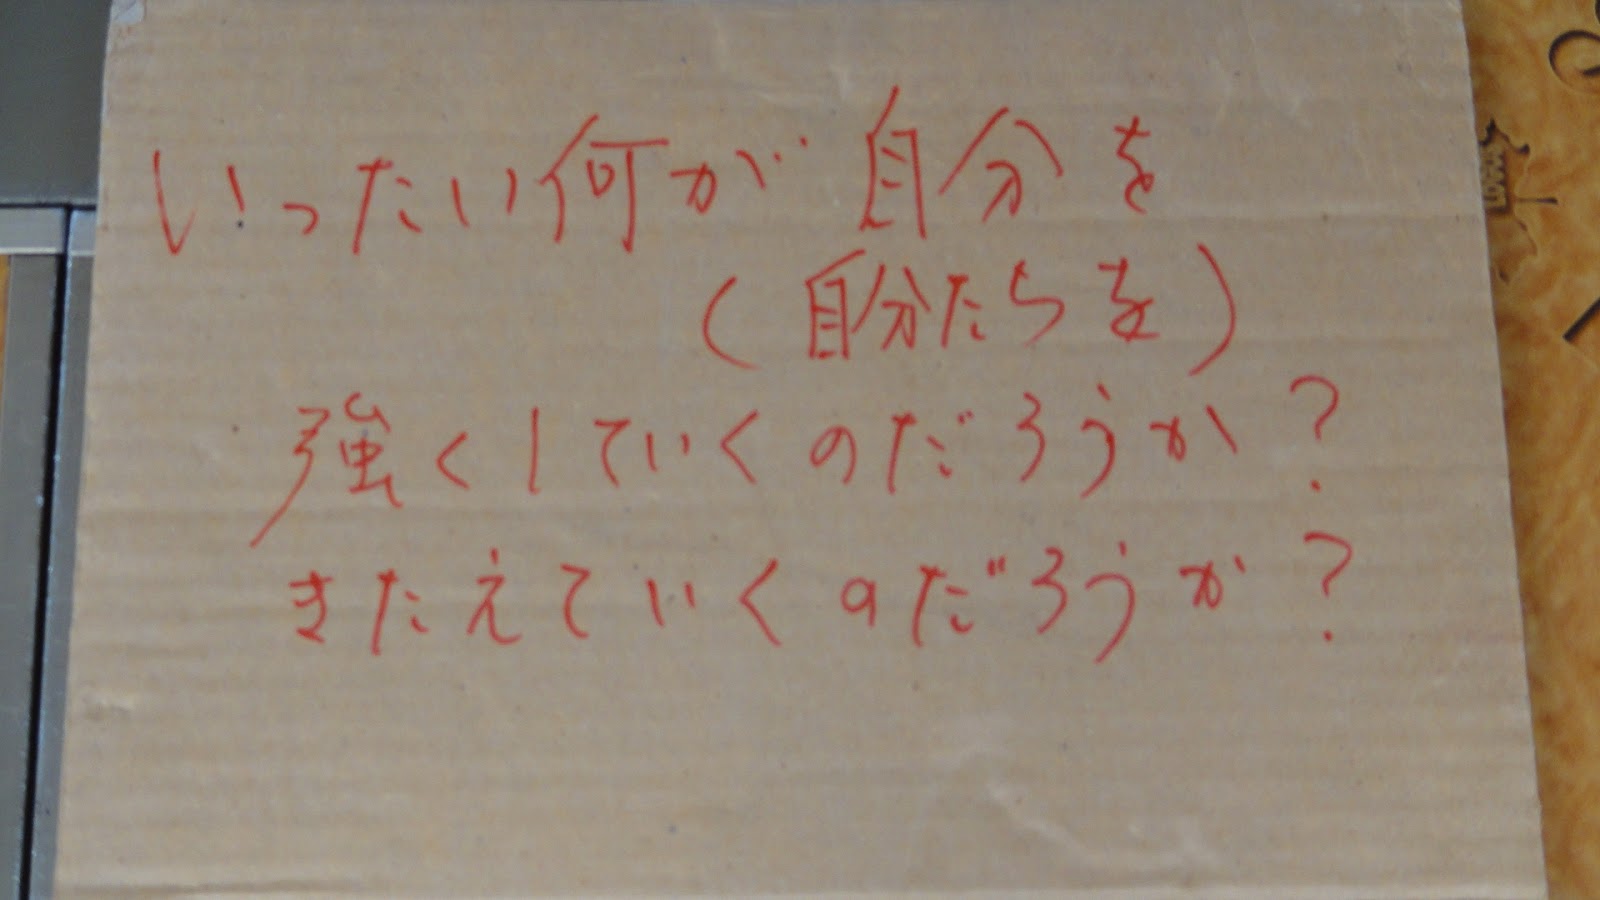 いったい何が自分を
(自分たちを)
強くしていくのだろうか?
きたえていくのだろうか?